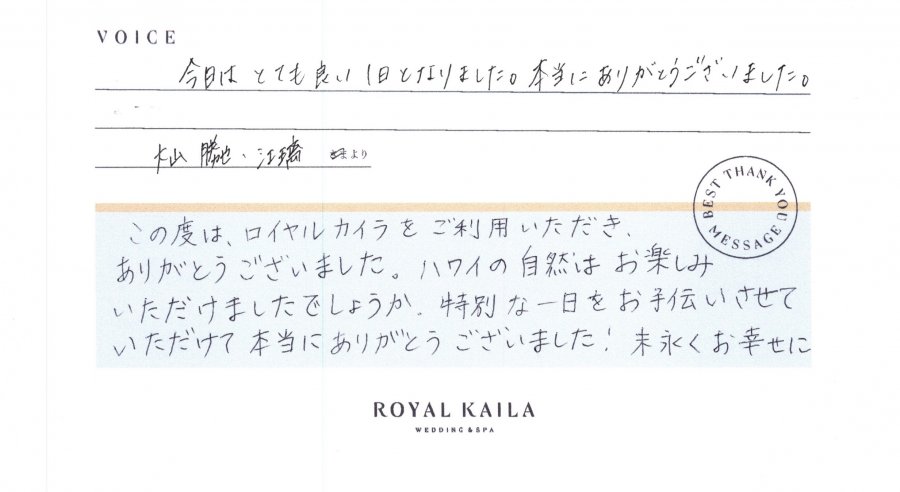 VOICE
今日は とても良い 1日となりました。本当にありがとうございました。
大山 勝也・江璃 さまより
BEST THANK YOU MESSAGE
この度は、ロイヤルカイラをご利用いただき、
ありがとうございました。ハワイの自然はお楽しみ
いただけましたでしょうか。特別な一日をお手伝いさせて
いただけて本当にありがとうございました! 末永くお幸せに
ROYAL KAILA
WEDDING & SPA